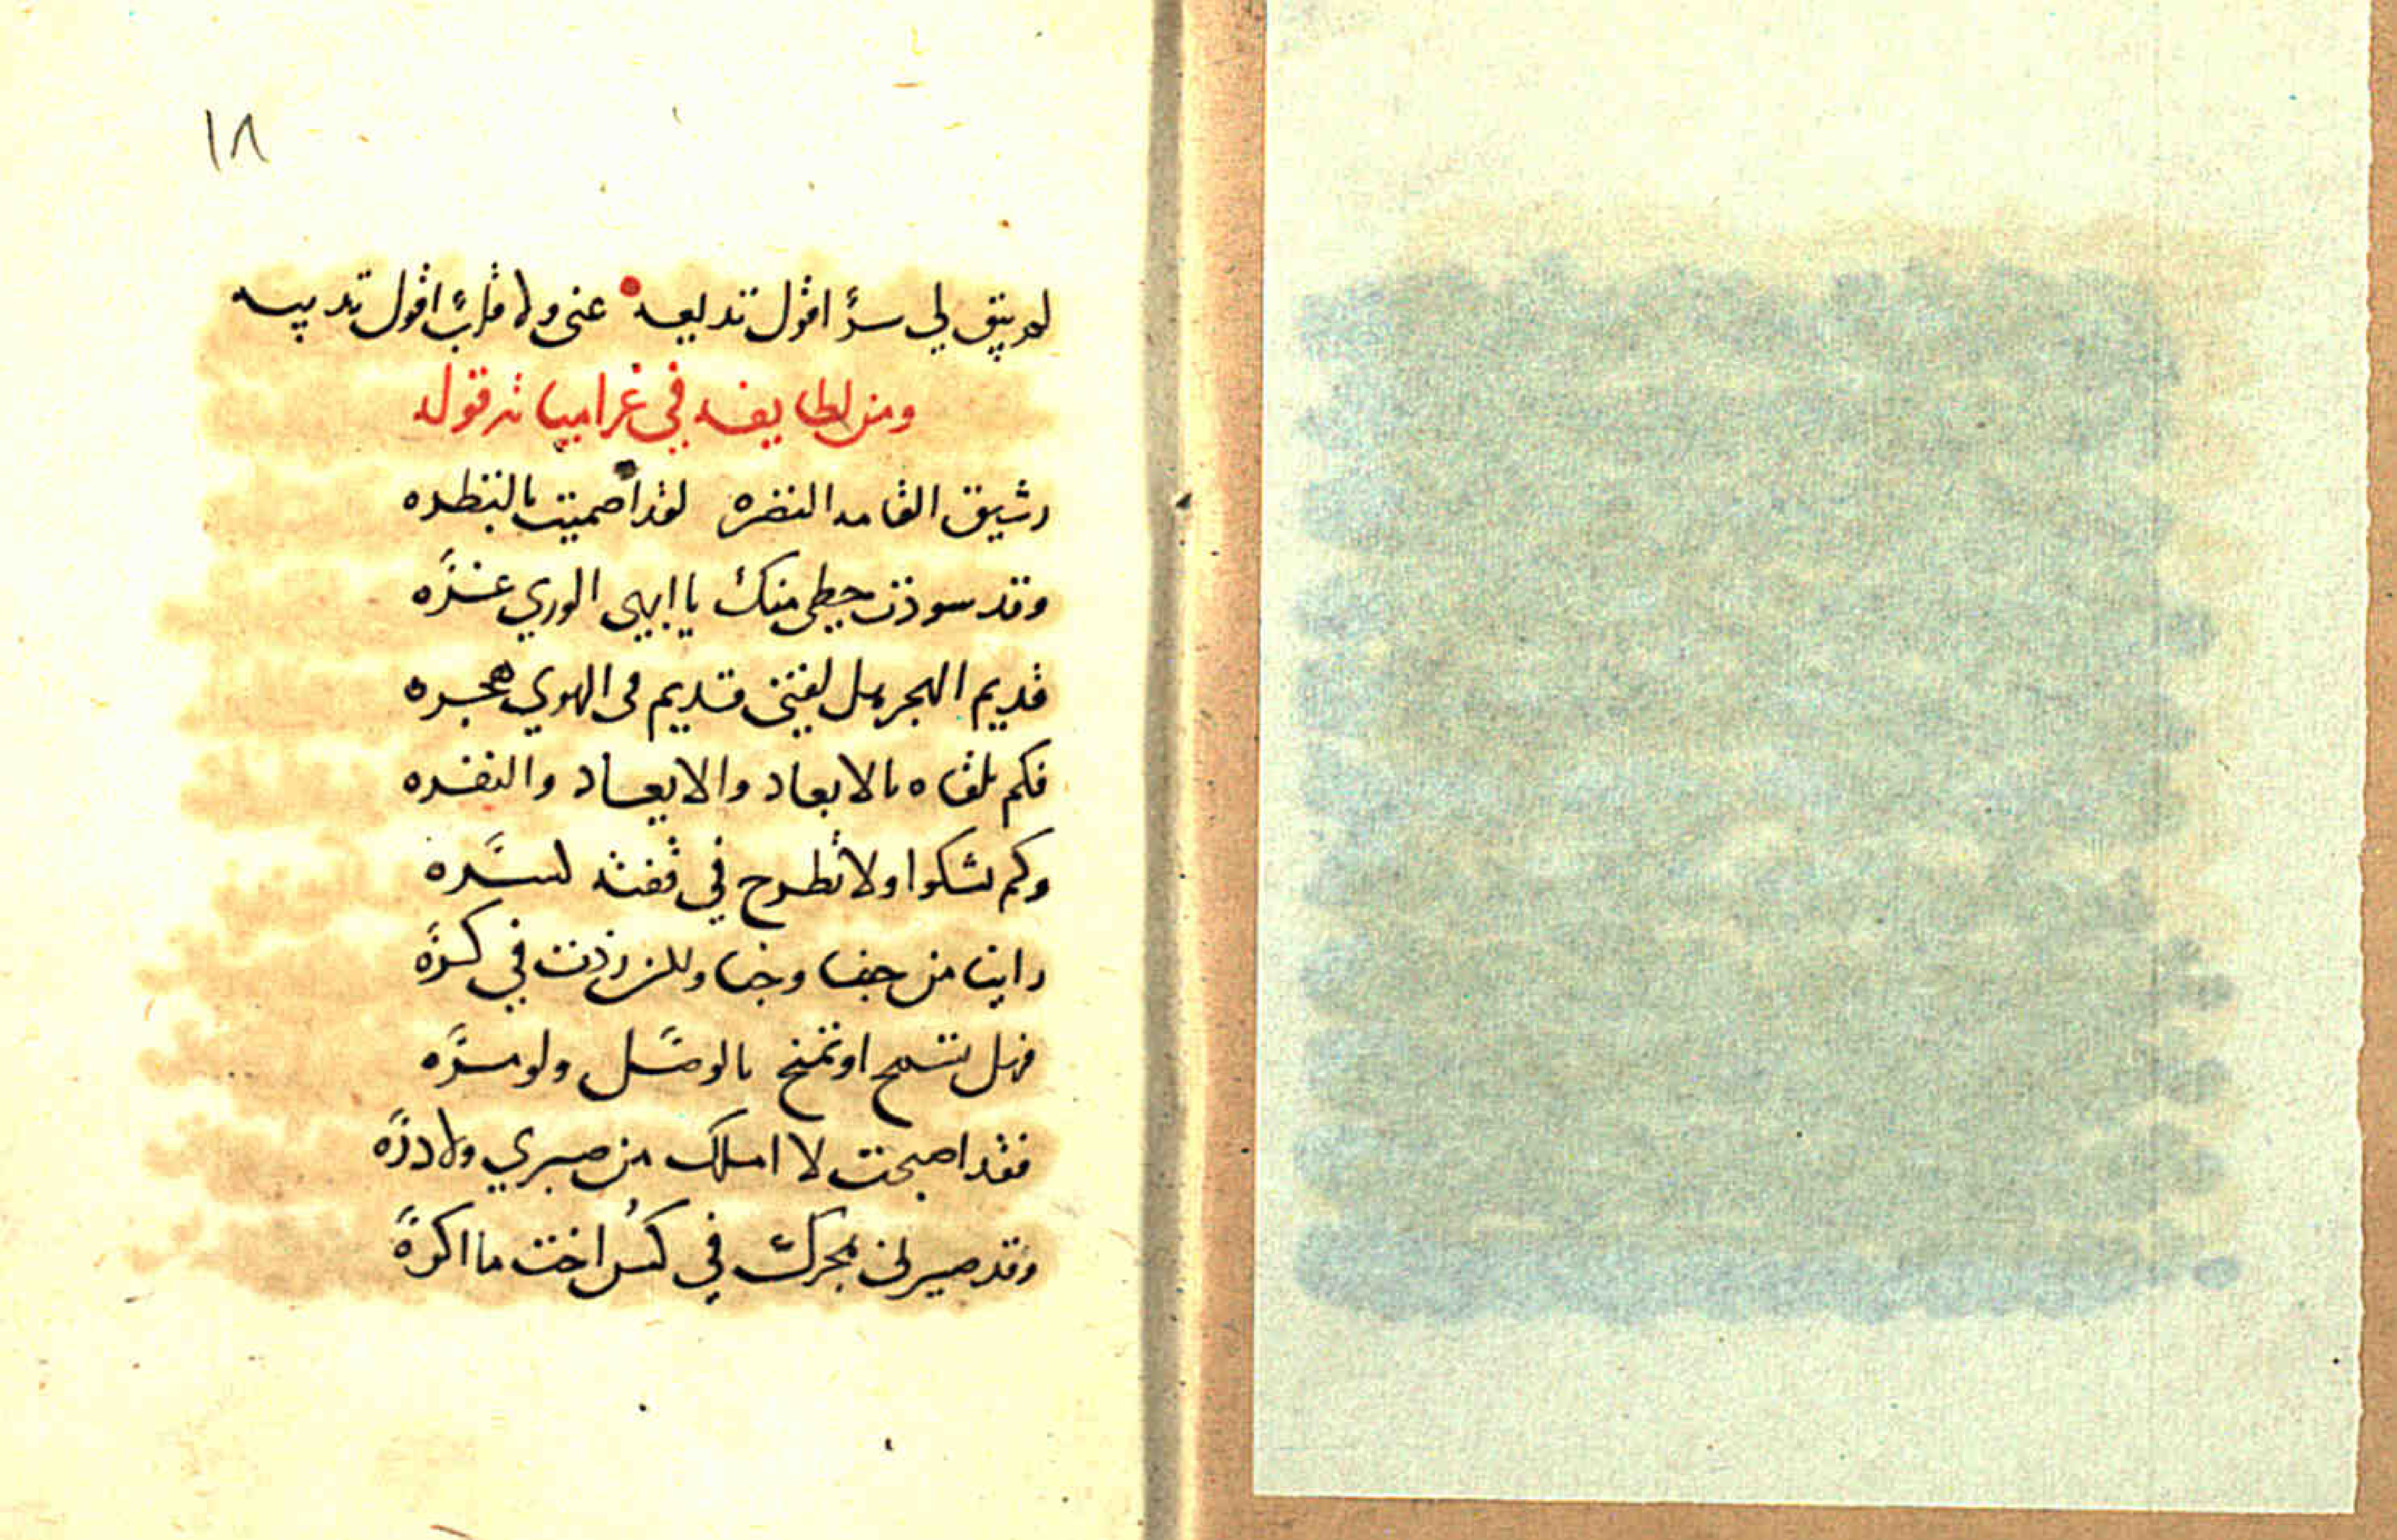 ١٨
لم يبق لي سرًّا اقول تذيعه عني ولا قلبًا اقول تذيبه
ومن لطايفه في غرامياته قوله
رشيق القامه النضره لقد اصميت بالنظره
وقد سودت حظي منك يا ابهي الوري غرَّه
قديم الهجر هل لفتى قديم في الهوي هجره
فكم تلقاه بالابعاد والايعاد والنفره
وكم نشكوا ولا تطرح في قفته لسره
راينا من جفا وجفا وللن زدت في كرَّه
فهل تسمح او تمنح بالوصل ولو مرَّه
فقد اصبحت لا املك من صبري ولا ذرَّه
وقد صيرني هجرك في كس اخت ما اكرَه